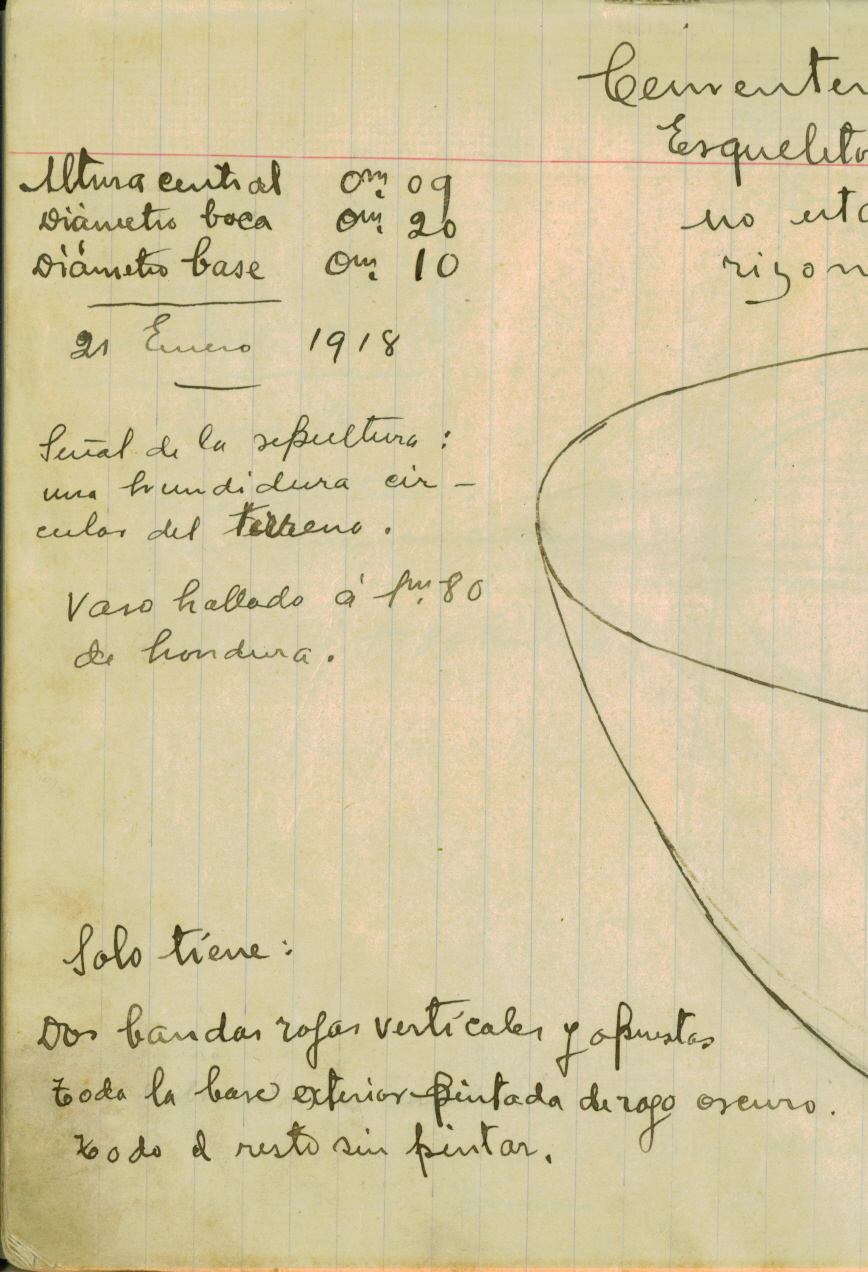 Cementer
Esqueleto
Altura central 0m. 09
Diámetro boca 0m. 20
Diámetro base 0m. 10
no esta
rizon
21 Enero 1918
Señal de la sepultura:
una hundidura cir-
cular del terreno.
Vaso hallado á 1m. 80
de hondura.
Solo tiene:
Dos bandas rojas verticales y opuestas
Toda la base exterior pintada de rojo oscuro.
Todo el resto sin pintar.